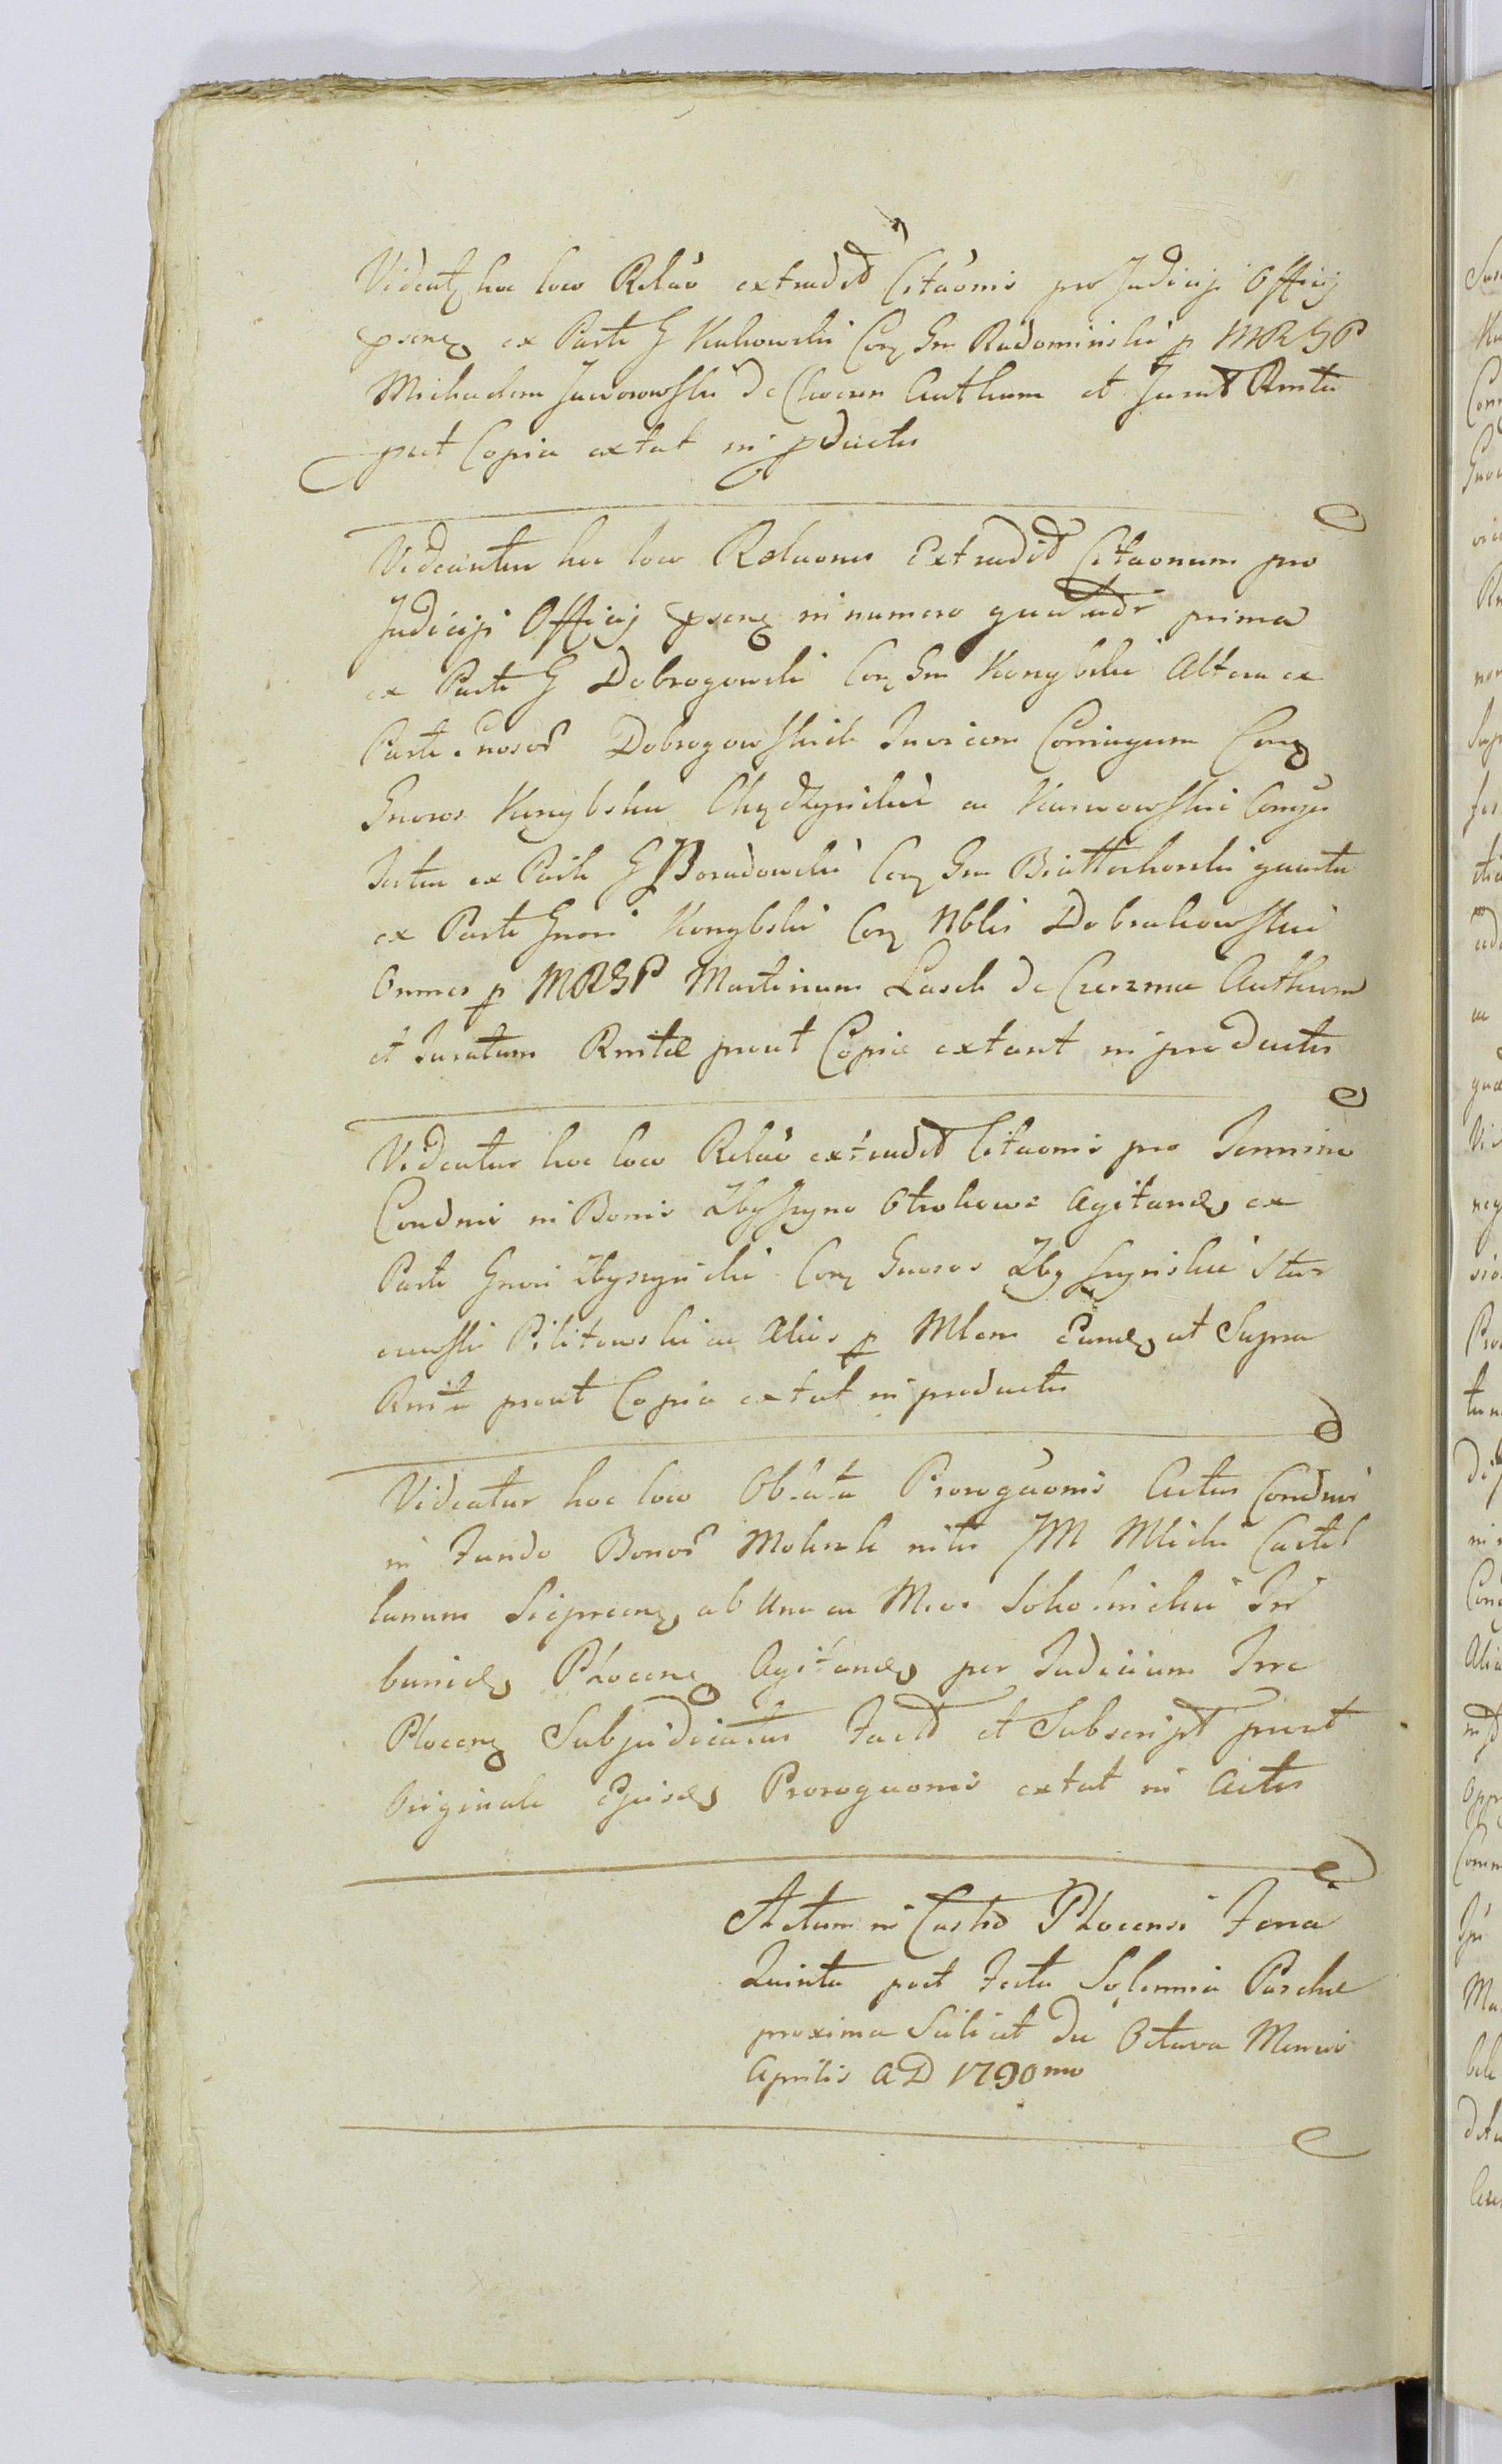 Videat hoc loco Relao extradit Citaonis pro Judicijs Officij
psens ex Parte G Kakowski Con Gm Radominski p MRGP
Michaelem Jaworowski de Ciocen Authum et Jurat Rnita
put Copia extat in pductis
Videantur hoc loco Relaones Extradit Citaonum pro
Judicijs Officij psens in numero quatuor prima
ex Parte G Dobrogowski Con Gm Konybski Altera ex
Parte Gnosor Dobrogowskich Invicem Coniugum Con
Gnoros Konybskie Chądzyński ac Karwowski Coniuges
Tertia ex Parte G Boradowski Con Gm Białłochowski quarta
ex Parte Gnosi Konybski Con Nblis Dobrakowskie
Omnes p MRGP Martinum Lasch de Czerzma Authum
et Juratum Rnitæ prout Copiæ extant in productis
Videatur hoc loco Relao extradit Citaonis pro Termino
Condnis in Bonis Zbyszyno Otrokowe Agitand ex
Parte Gnosi Zbyszyński Con Gnosos Zbyszyńskie Star
ewski Pilitowski ac Alios p Mlem Eund ut Supra
Rnita prout Copia extat in productis
Videatur hoc loco Oblata Prorogaonis Actus Condnis
in Fundo Bonor inter JM Mlicki Castel
lanum Sieprcens ab Una ac M Sokolnickie Tri
bunid Plocens Agitand per Judicium Trre
Plocens Subjudicatus Fact et Subscript prout
Originale Ejusd Prorogaonis extat in Actis
Actum in Castro Plocensi Feria
Quinta post Festa Solennia Paschæ
proxima Scilicet Die Octava Mensis
Aprilis AD 1790mo